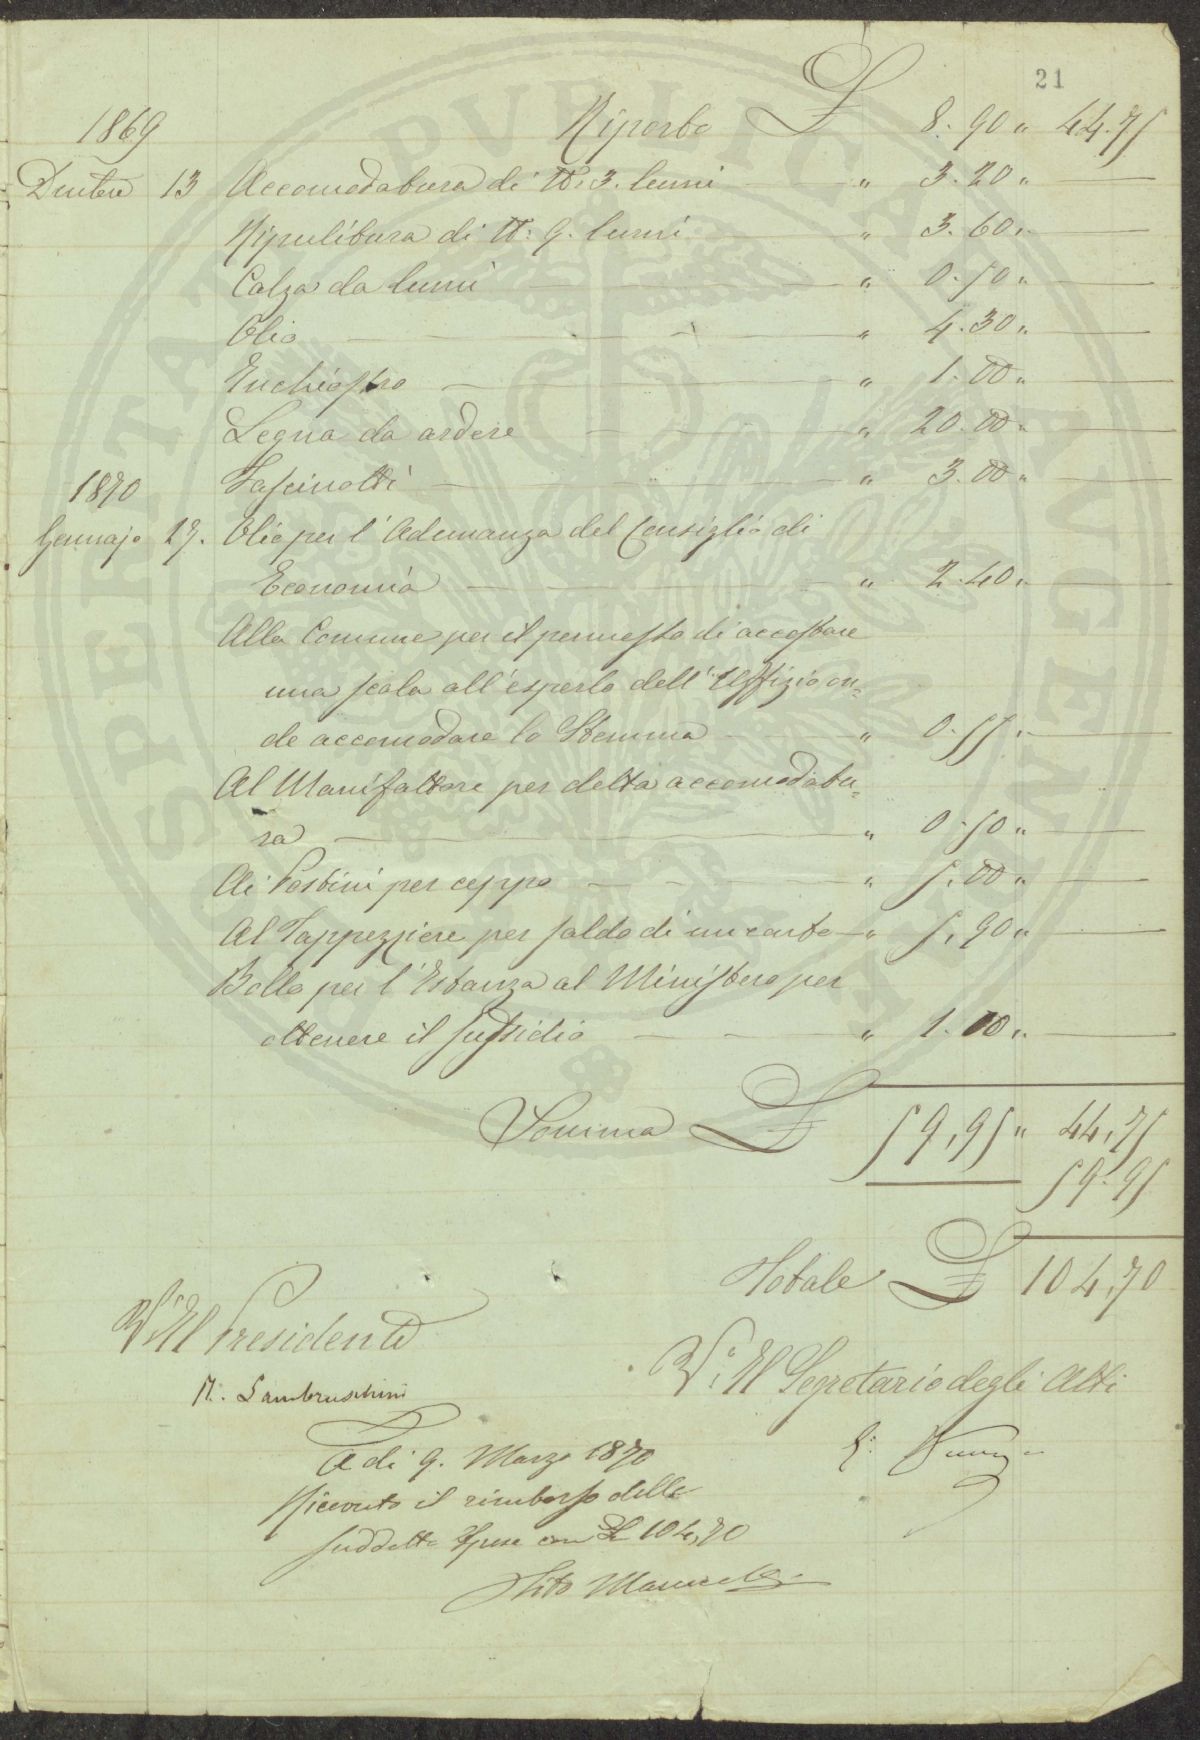 21
1869 Riporto £ 8.90 " 44.75
Dicembre 13 Accomodatura di N: 3. lumi " 3.20 "
Ripulitura di N: 9. lumi " 3.60 "
Calza da lumi " 0.50 "
Olio " 4.30 "
Inchiostro " 1.00 "
Legna da ardere " 20.00 "
1870 Fascinotti " 3.00 "
Gennajo 27. Olio per l'Adunanza del Consiglio di
Economia " 2.40 "
Alla Comune per il permesso di accostare
una scala all'esperto dell'Uffizio on=
de accomodare lo Stemma " 0.55 "
Al Manifattore per detta accomodatu=
ra " 0.50 "
Ai Postini per ceppo " 5.00 "
Al Tappezziere per saldo di un conto " 5,90 "
Bollo per l'Estanza al Ministero per
ottenere il sussidio " 1.00 "
Somma £ 59,95 " 44,75
59.95
Totale £ 104,70
V° Il Presidente
R. Lambruschini
V° Il Segretario degli Atti
A di 9. Marzo 1870
Ricevuto il rimborso delle
suddette spese in £ 104,70
Tito
PROSPERITATI PVBLICAE AVGENDAE